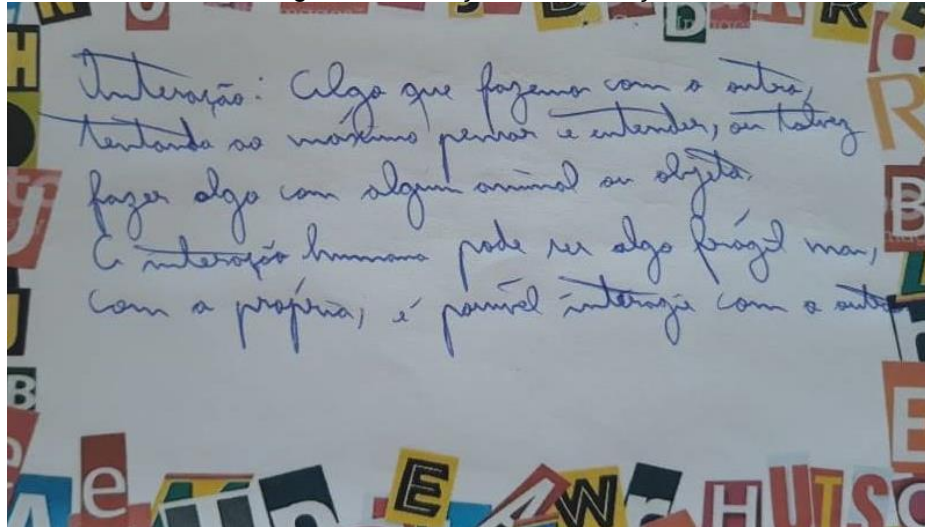 Interação: Algo que fazemos com o outro,
tentando ao máximo pensar e entender, ou talvez
fazer algo com algum animal ou objeto.
A interação humana pode ser algo frágil mas,
com a própria, é possível interagir com o outro